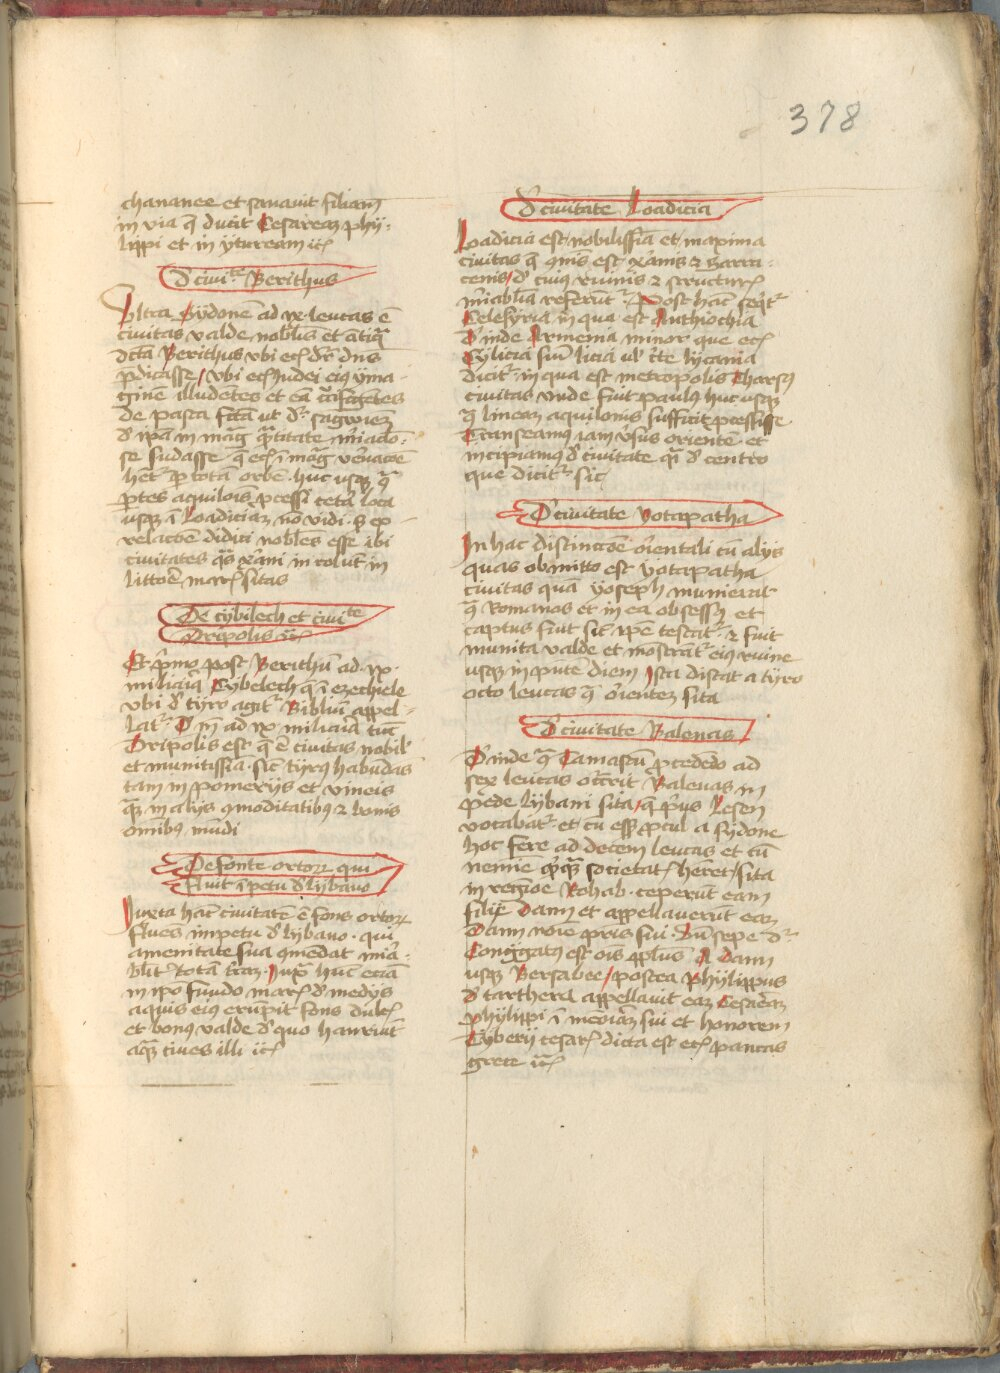 378
chananee et sanavit filiam
in via q̄ ducit Cesaream phy-
lippi et in yturream etc
D' civite Berithus
Ultra Sydonē ad ix leucas ē
civitas valde nobił et ātiq̄
dc̄ta Berithus vbi ec̄ dr̄ dn̄s
p̄dicasse / vbi ec̄ Iudei eiꝰ yma-
ginē illudētes et eā c̄ifigētes
de pasta fc̄tā ut dr̄ sagwinē
d' ip̄a in maḡ q̄titate
se sudasse q̄ ec̄ ī maḡ ven̄acōe
hēt̄ p̄ totā orbē. huc usqꝫ q̄
p̄tes aquilōis p̄cessi cetā loca
usqꝫ ī Loadiciā nō vidi. s ex
relacōe didici nobiles esse ibi
civitates q̄s xp̄iani incolūt in
littoē mar̄ sitas
De cybilech et civite
Tripolis etc
Et p̄mo post Berithū ad ix
miliaria Cybelech q̄ ī ezechiele
vbi d' tyro agit̄ Bibliū appel-
lat̄. D' in ad ix miliaria tūc
Tripolis est q̄ ē civitas nobił
et munitissīa. sic tyrꝰ habūdās
tam in pomerijs et vineis
q̄ꝫ in alijs ꝯmoditatibꝰ et bonis
om̄ibꝰ mundi
De fonte ortorꝝ qui
fluit īpetu d' lybano
Iuxta hanc civitatē ē fons ortorꝝ
fluēs impetu d' lybano. qui
amenitate sua ꝯmēdat mīa-
bl̄r totā t̄rā. Iuxᵃ huc eciā
in ip̄o fundo mar̄ d' medijs
aquis eiꝰ erūpit fons dulc̄
et bonꝰ valde d' quo hauriūt
aq̄ꝫ cives illi etc
D' civitate Loadicia
Loadicia est nobilissīa et maxima
civitas q̄ est xp̄ianis et sarra-
cenis / d' cuiꝰ ruinis et structur̄
mīabilia referūt. Post hāc seq̄t̄
Celesyria in qua est Anthiochia
D' inde Armenia minor que ec̄
Cylicia sive licia ul' lycania
dicit̄. in qua est metropolis Tharsꝰ
civitas unde fuit paulꝰ huc usqꝫ
q̄ lineam aquilonis sufficit p̄cessisse
Transeamꝰ iam v̄sus orientē et
incipiamꝰ d' civitate q̄ d' centro
que dicit̄ sic
D' civitate Yotapatha
In hac distinctōe oriētali cū alijs
quas obmitto est yotapatha
civitas quā yoseph munierat
ꝯ Romanos et in ea obsessꝰ et
captus fuit sic̄ ip̄e testat̄ et fuit
munita valde et mostrāt̄ eiꝰ ruine
usqꝫ in p̄ntē diem Ista distat a tyro
octo leucas ꝯ orientem sita
D' civitate Balenas
D' inde ꝯ Damascū p̄cedēdo ad
sex leucas occ̄rit Balenas in
pede lybani sita / q̄ p̄us Lesen
vocabāt̄ et cū ess̄ p̄cul a sydone
hoc fere ad decem leucas et cū
nemīe societat̄ her̄et / sita
in regiōe Rohab. ceperūt eam
filij Dann et appellaverūt eam
Dann noīe pr̄is sui. Un̄ sepe dr̄
Congregatꝰ est oīs ppl̄us A Dann
usqꝫ Bersabee / postea Phylippus
d' appellavit eam Cesarēa
Phylippi ī memoriā sui et honorem
Tyberij cesar̄ dicta est ec̄ paneas
grece etc